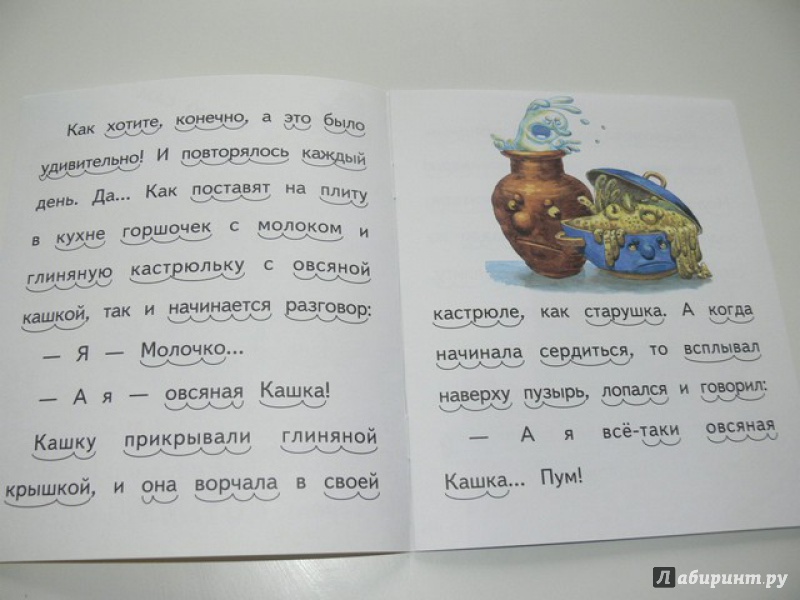 Как хотите, конечно, а это было
удивительно! И повторялось каждый
день. Да... Как поставят на плиту
в кухне горшочек с молоком и
глиняную кастрюльку с овсяной
кашкой, так и начинается разговор:
— Я — Молочко...
— А я — овсяная Кашка!
Кашку прикрывали глиняной
крышкой, и она ворчала в своей
кастрюле, как старушка. А когда
начинала сердиться, то всплывал
наверху пузырь, лопался и говорил:
— А я всё-таки овсяная
Кашка... Пум!
Лабиринт.ру